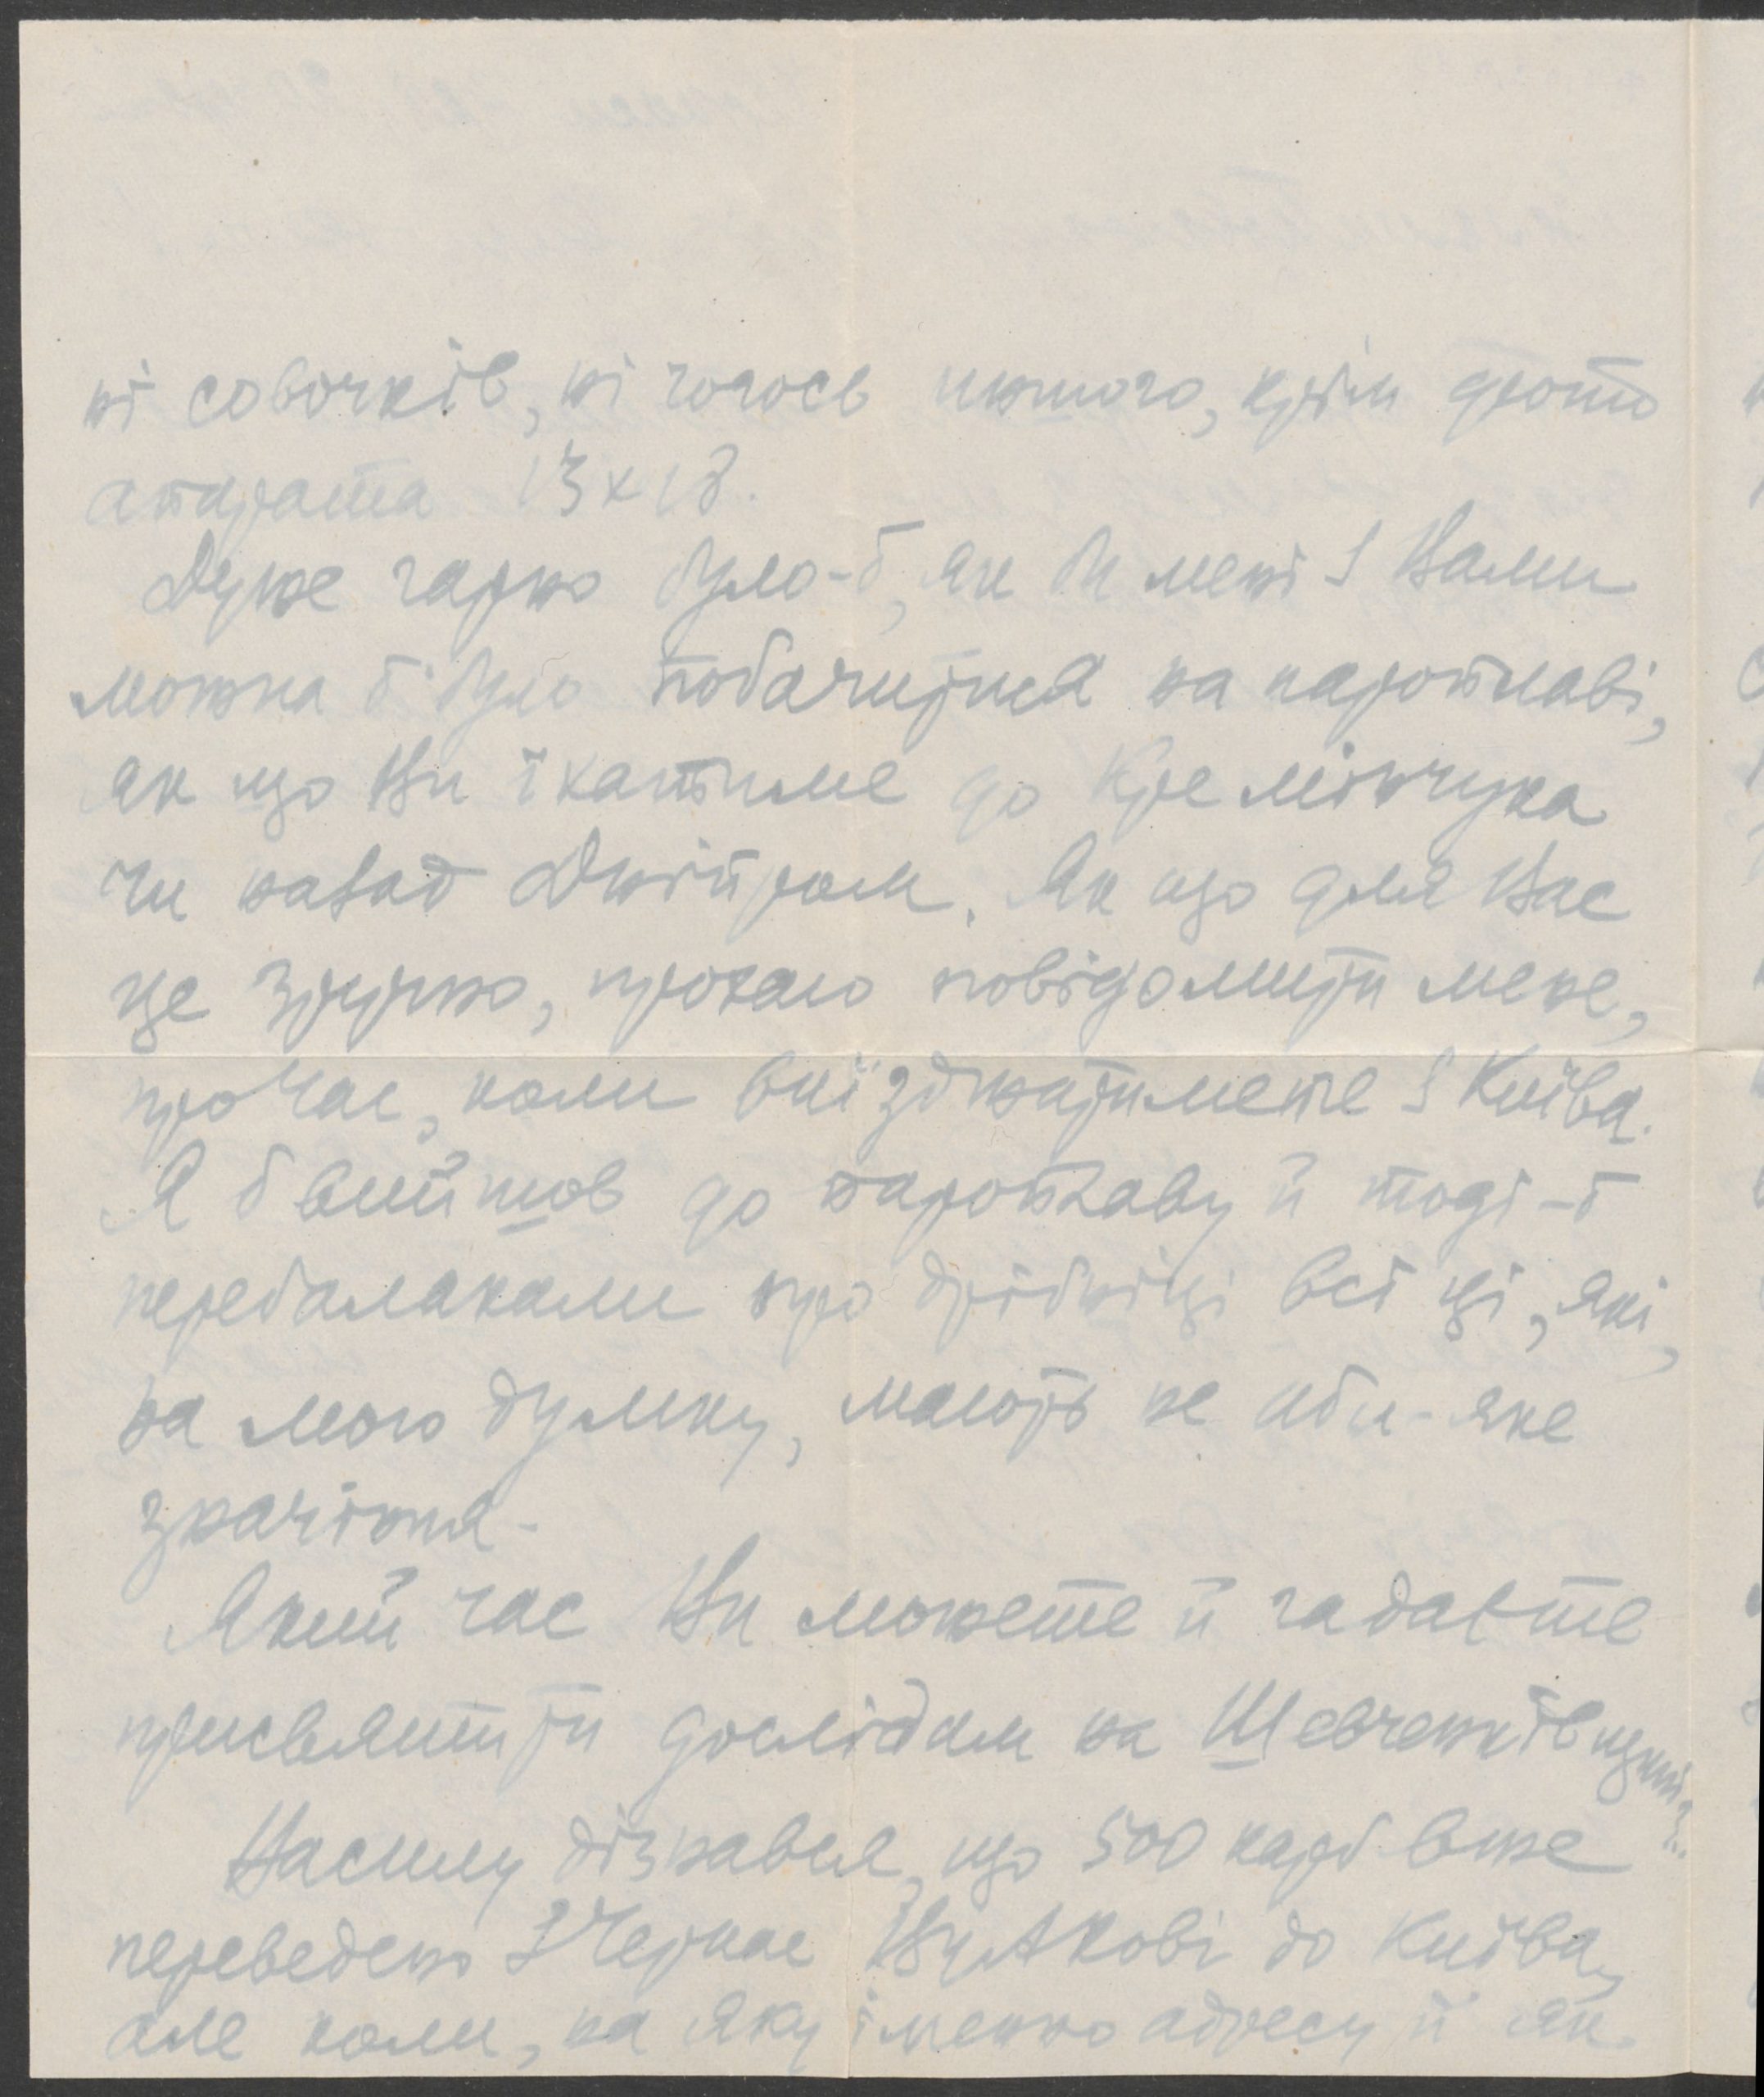 ні совочків, ні чогось иншого, крім фото
апарата 13 х 18.
Дуже гарно було-б, як би мені з Вами
можна б було побачитися на пароплаві,
як що Ви їхатиме до Кремінчука
чи назад Дніпром. Як що для Вас
це зручно, прохаю повідомити мене,
про час, коли виїзджатимете з Київа.
Я б вийшов до пароплаву й тоді-б
перебалакали про дрібніці всі ці, які,
на мою думку, мають не аби-яке
значіння.
Який час Ви можете й гадаєте
присвятити дослідам на Шевченківщині?
Насилу дізнався, що 500 карб вже
переведено з Черкас до Київа,
але коли, на яку іменно адресу й як